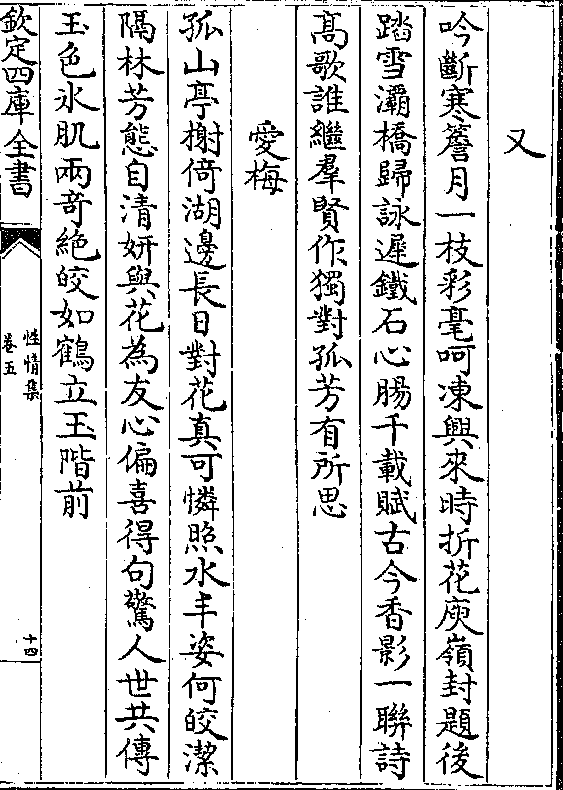 又
吟斷寒簷月一枝彩毫呵凍興來時折花庾嶺封題後
踏雪灞橋歸詠遲鐵石心腸千載賦古今香影一聯詩
高歌誰繼羣賢作獨對孤芳有所思
愛梅
孤山亭榭倚湖邊長日對花真可憐照水丰姿何皎潔
隔林芳態自清妍與花為友心偏喜得句驚人世共傳
玉色氷肌兩竒絶皎如鶴立玉階前
欽定四庫全書
性情集
卷五
十四